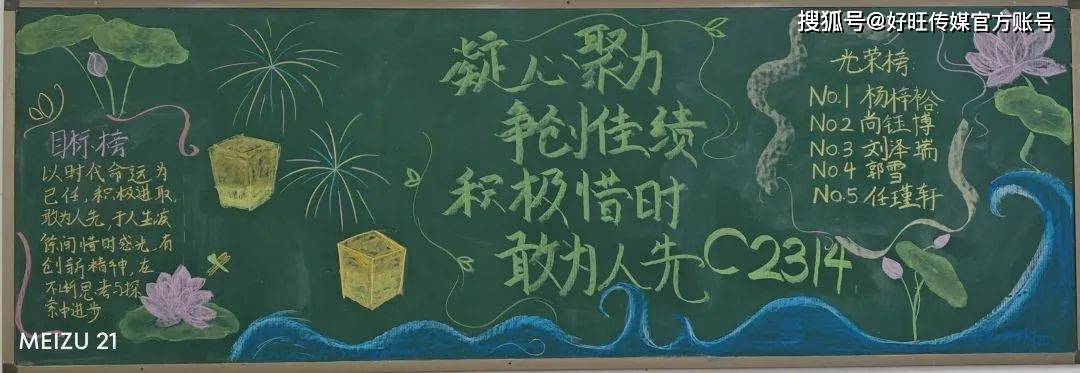 搜狐号@好旺传媒官方账号
目标榜
以时代命运为
已任，积极进取，
敢为人先，于人生
间惜时 光，有
创新精神，在
不断思考与探
索中进步
凝心聚力
争创佳绩
积极惜时
敢为人先C2314
光荣榜
No.1 杨梓裕
No2 尚钰博
No.3 刘泽瑞
No.4 郭雪
No.5 任瑾轩
MEIZU 21